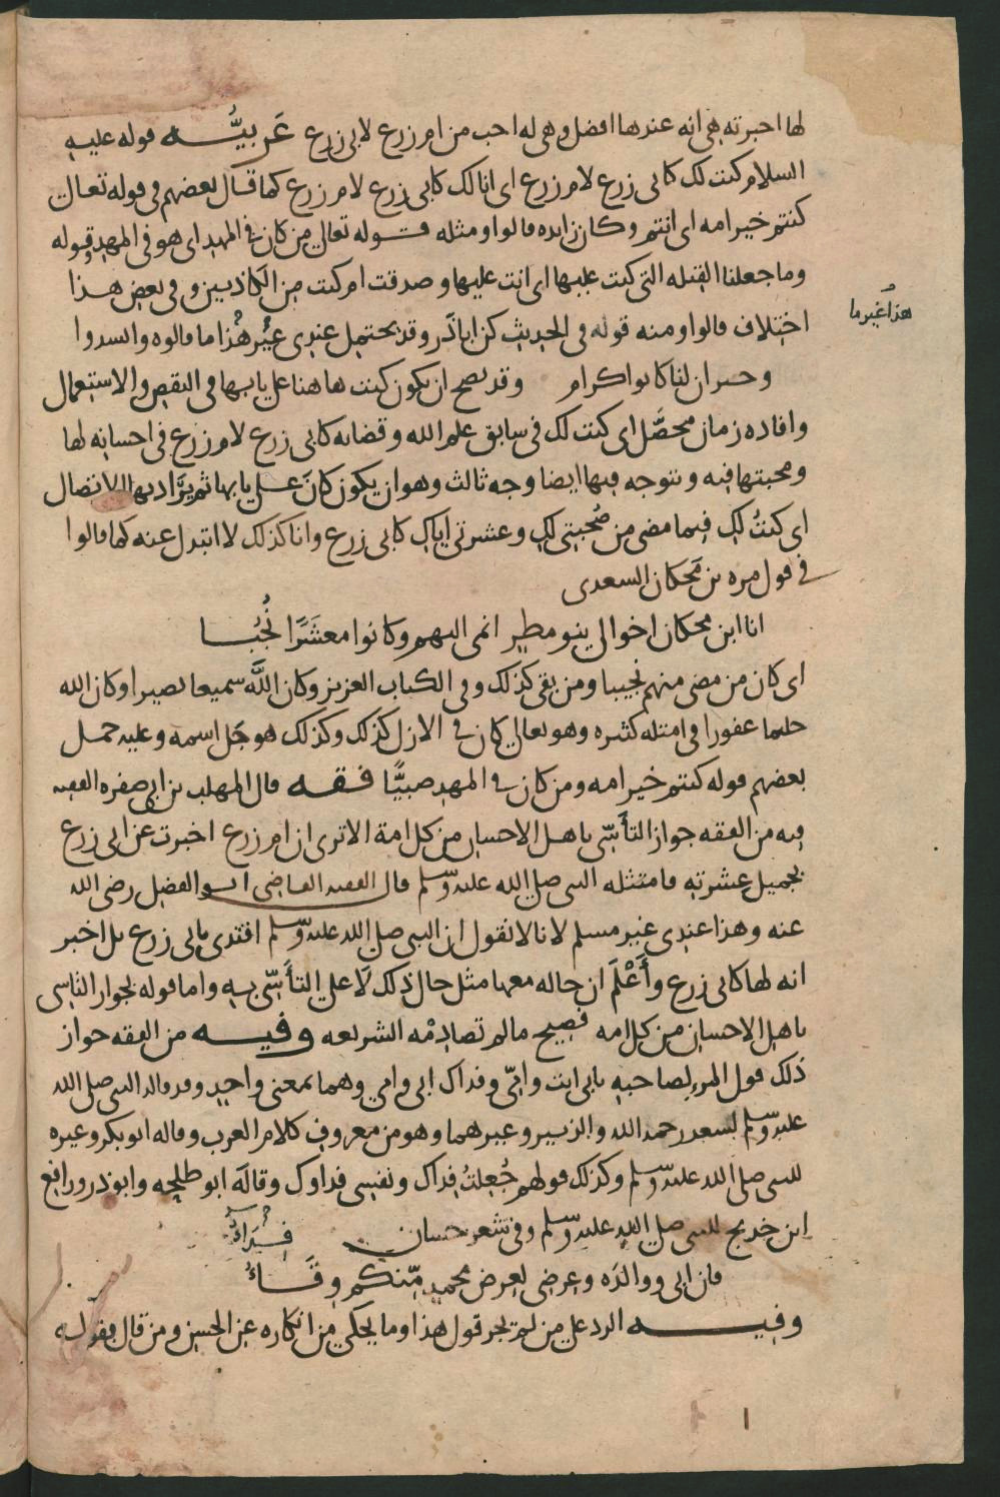 لها اخبرته هي انه عندها افضل وهي له احب من ام زرع لابي زرع عَربيَّــه قوله عليه
السلام كنت لك كابي زرع لام زرع اي انا لك كابي زرع لام زرع كما قال بعضهم في قوله تعالى
كنتم خير امه اي انتم وكان زايده قالوا ومثله قــوله تعالى من كان في المهد اي هو في المهد وقوله
وما جعلنا القبله التي كنت عليها اي انت عليها وصدقت ام كنت من الكاذبين وفي بعض هذا
اختلاف قالوا ومنه قوله في الحديث كن اباذر وقد يحتمل عندي غيُر هذا ما قالوه وانسدوا
هذا غير ما
وجيران لنا كانوا كرام وقد يصح ان يكون كنت هاهنا على بابها في النقص والاستعمال
وافاده زمان محصَّل اي كنت لك في سابق علم الله وقضائه كابي زرع لام زرع في احسانه لها
ومحبتها فيه ويتوجه فيها ايضا وجه ثالث وهو ان يكون كان على بابها ثم يُراد بها الاتصال
اي كنتُ لكِ فيما مضى من صُحبتي لكِ وعشرتي اياكِ كابي زرع وانا كذلك لا اتبدل عنه كما قالوا
في قول مره بن مَحكان السعدي
انا ابن محكان اخوالي بنو مطير انمي اليهم وكانوا معشَرًا نُجُبــا
اي كان من مضى منهم نجيبا ومن بقي كذلك وفي الكتاب العزيز وكان اللَّه سميعا بصيرا وكان الله
حليما غفورا في امثله كثيره وهو تعالى كان في الازل كذلك وكذلك هو جَل اسمه وعليه حمــل
بعضهم قوله كنتم خير امه ومن كان في المهد صبيًّا فــقــه قال المهلب بن ابي صفره الفقيه
فيه من الفقه جواز التأسّي باهل الاحسان من كل امة الا ترى ان ام زرع اخبرت عن ابي زرع
بجميل عشرته فامتثله النبي صلى الله عليه وسلم قال الفقيه القاضي ابــو الفضل رضي الله
عنه وهذا عندي غير مسلم لانا لا نقول ان النبي صلى الله عليه وسلم اقتدى بابي زرع بل اخبر
انه لها كابي زرع وأَعْلَم ان حاله معها مثل حال ذلك لا على التأسّي به واما قوله بجواز التاسى
باهل الاحسان من كل امه فصيح ما لم تصادمْه الشريعه وفيــه من الفقه جواز
ذلك قول المرء لصاحبه بابي انت وامّي وفداك ابي وامي وهما بمعنى واحدٍ وقد قاله النبي صلى الله
عليه وسلم لسعد رحمه الله والزبير وغيرهما وهو من معروف كلام العرب وقاله ابو بكر وغيره
للنبي صلى الله عليه وسلم وكذلك قولهم جُعلتُ فِداك ونفسي فداوك وقالَه ابو طلحه وابو ذر ورافع
ابن خديج للنبي صلى الله عليه وسلم وفي شعر حسان
فِدَاءُ
فان ابي ووالدَه وعرضي لعرض محمد مّنكم وقَــاءُ
وفيــــه الرد على من لم يجز قول هذا وما يحكى من انكاره عن الحسن ومن قال بقوله